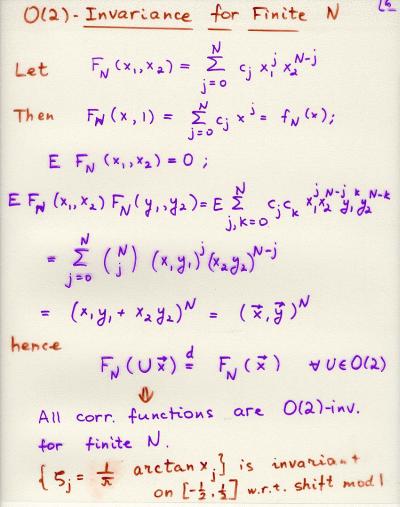 O(2)-Invariance for Finite N
Let F_N (x₁,x₂) = ∑_{j=0}^{N} c_j x₁^j x₂^{N-j}
Then F_N (x,1) = ∑_{j=0}^{N} c_j x^j = f_N(x);
E F_N (x₁,x₂) = 0 ;
E F_N (x₁,x₂) F_N (y₁,y₂) = E ∑_{j,k=0}^{N} c_j c_k x₁^j x₂^{N-j} y₁^k y₂^{N-k}
= ∑_{j=0}^{N} (N j) (x₁y₁)^j (x₂y₂)^{N-j}
= (x₁y₁ + x₂y₂)^N = (x⃗, y⃗)^N
hence
F_N (Ux⃗) =^d F_N (x⃗) ∀ U∈O(2)
⇓
All corr. functions are O(2)-inv.
for finite N.
{ζ_j = 1/π arctan x_j} is invariant
on [-½, ½] w.r.t. shift mod 1